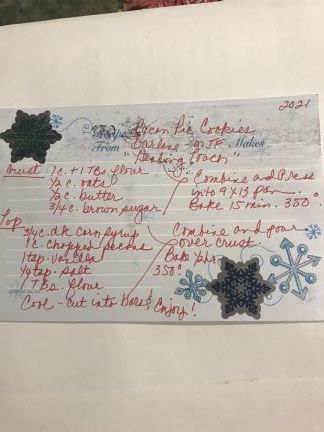 2021
Recipe Pecan Pie Cookies
From Darlene Makes
"Healing Touch"
Crust 1c. + 1 TBs. flour
½ c. oats
½ c. butter
3/4 c. brown sugar
Combine and Press
into 9 x 13 pan.
Bake 15 min. 350°
Top
3/4 c. dk corn syrup
1 c. chopped pecans
1 tsp. vanilla
¼ tsp. salt
1 TBs. flour
Combine and pour
over crust.
Bake
350°
Cool - cut into bars! Enjoy!